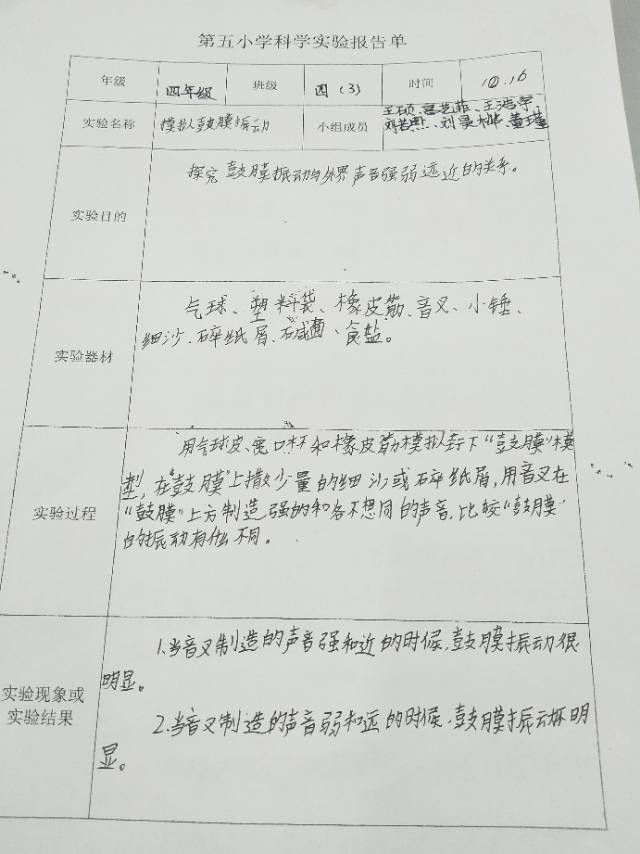 第五小学科学实验报告单
年级 四年级 班级 四(3) 时间 10.16
实验名称 模拟鼓膜振动 小组成员
实验目的
探究鼓膜振动与外界声音强弱远近的关系。
实验器材
气球、塑料袋、橡皮筋、音叉、小锤、
细沙、碎纸屑、碱面、食盐。
实验过程
用气球皮、宽口杯和橡皮筋模拟 下“鼓膜”模
型,在“鼓膜”上撒少量的细沙或碎纸屑,用音叉在
“鼓膜”上方制造强 和各不 同的声音,比较“鼓膜”
的振动有什么不同。
实验现象或
实验结果
1.当音叉制造的声音强和近的时候,鼓膜振动很
明显。
2.当音叉制造的声音弱和远的时候,鼓膜振动 明
显。